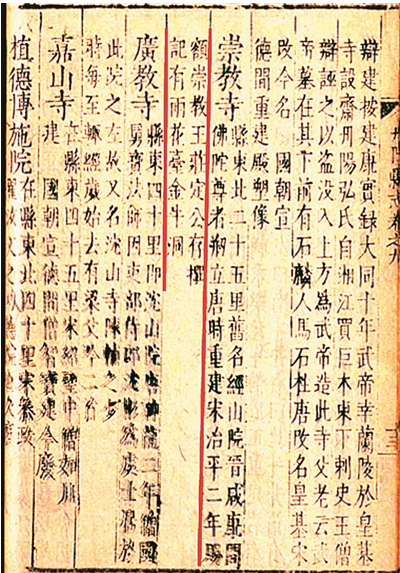 辯建按建康實録大同十年武帝幸蘭陵於皇基
寺設齋丹陽弘氏自湘江買巨木東下刺史王僧
丹陽縣志卷之九
辯誣之以盗没入上方為武帝造此寺父老云武
帝墓在其下前有石麟人馬石柱唐改名皇基宋
改今名 國朝宣
德間重建殿像
崇教寺 縣東北二十五里舊名經山院晉咸康間
佛陀尊者剏立唐時重建宋治平二年賜
額崇教王莊定公存撰
記有雨花臺金牛洞
廣教寺 縣東四十里即沈山院 二年
齋法師因吏部侍郎沈
此院之左故又名沈山寺陳
時每至輒經歲始去有梁父吟二首
嘉山寺 在縣東四十五里宋紹 中僧如川
建 國朝宣德間僧智 建今廢
植德博施院 在縣東北四十里宋